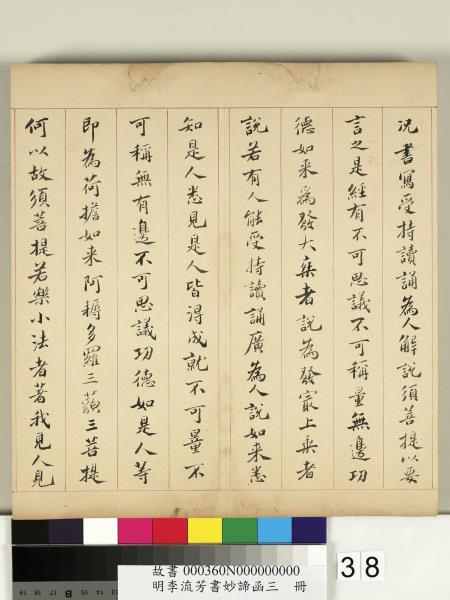 况書寫受持讀誦為人解說須菩提以要
言之是經有不可思議不可稱量無邊功
德如来為發大乘者說為發最上乘者
說若有人能受持讀誦廣為人說如来悉
知是人悉見是人皆得成就不可量不
可稱無有邊不可思議功德如是人等
即為荷擔如来阿耨多羅三藐三菩提
何以故須菩提若樂小法者著我見人見
故書 000360N000000000
明李流芳書妙諦函三 冊
38